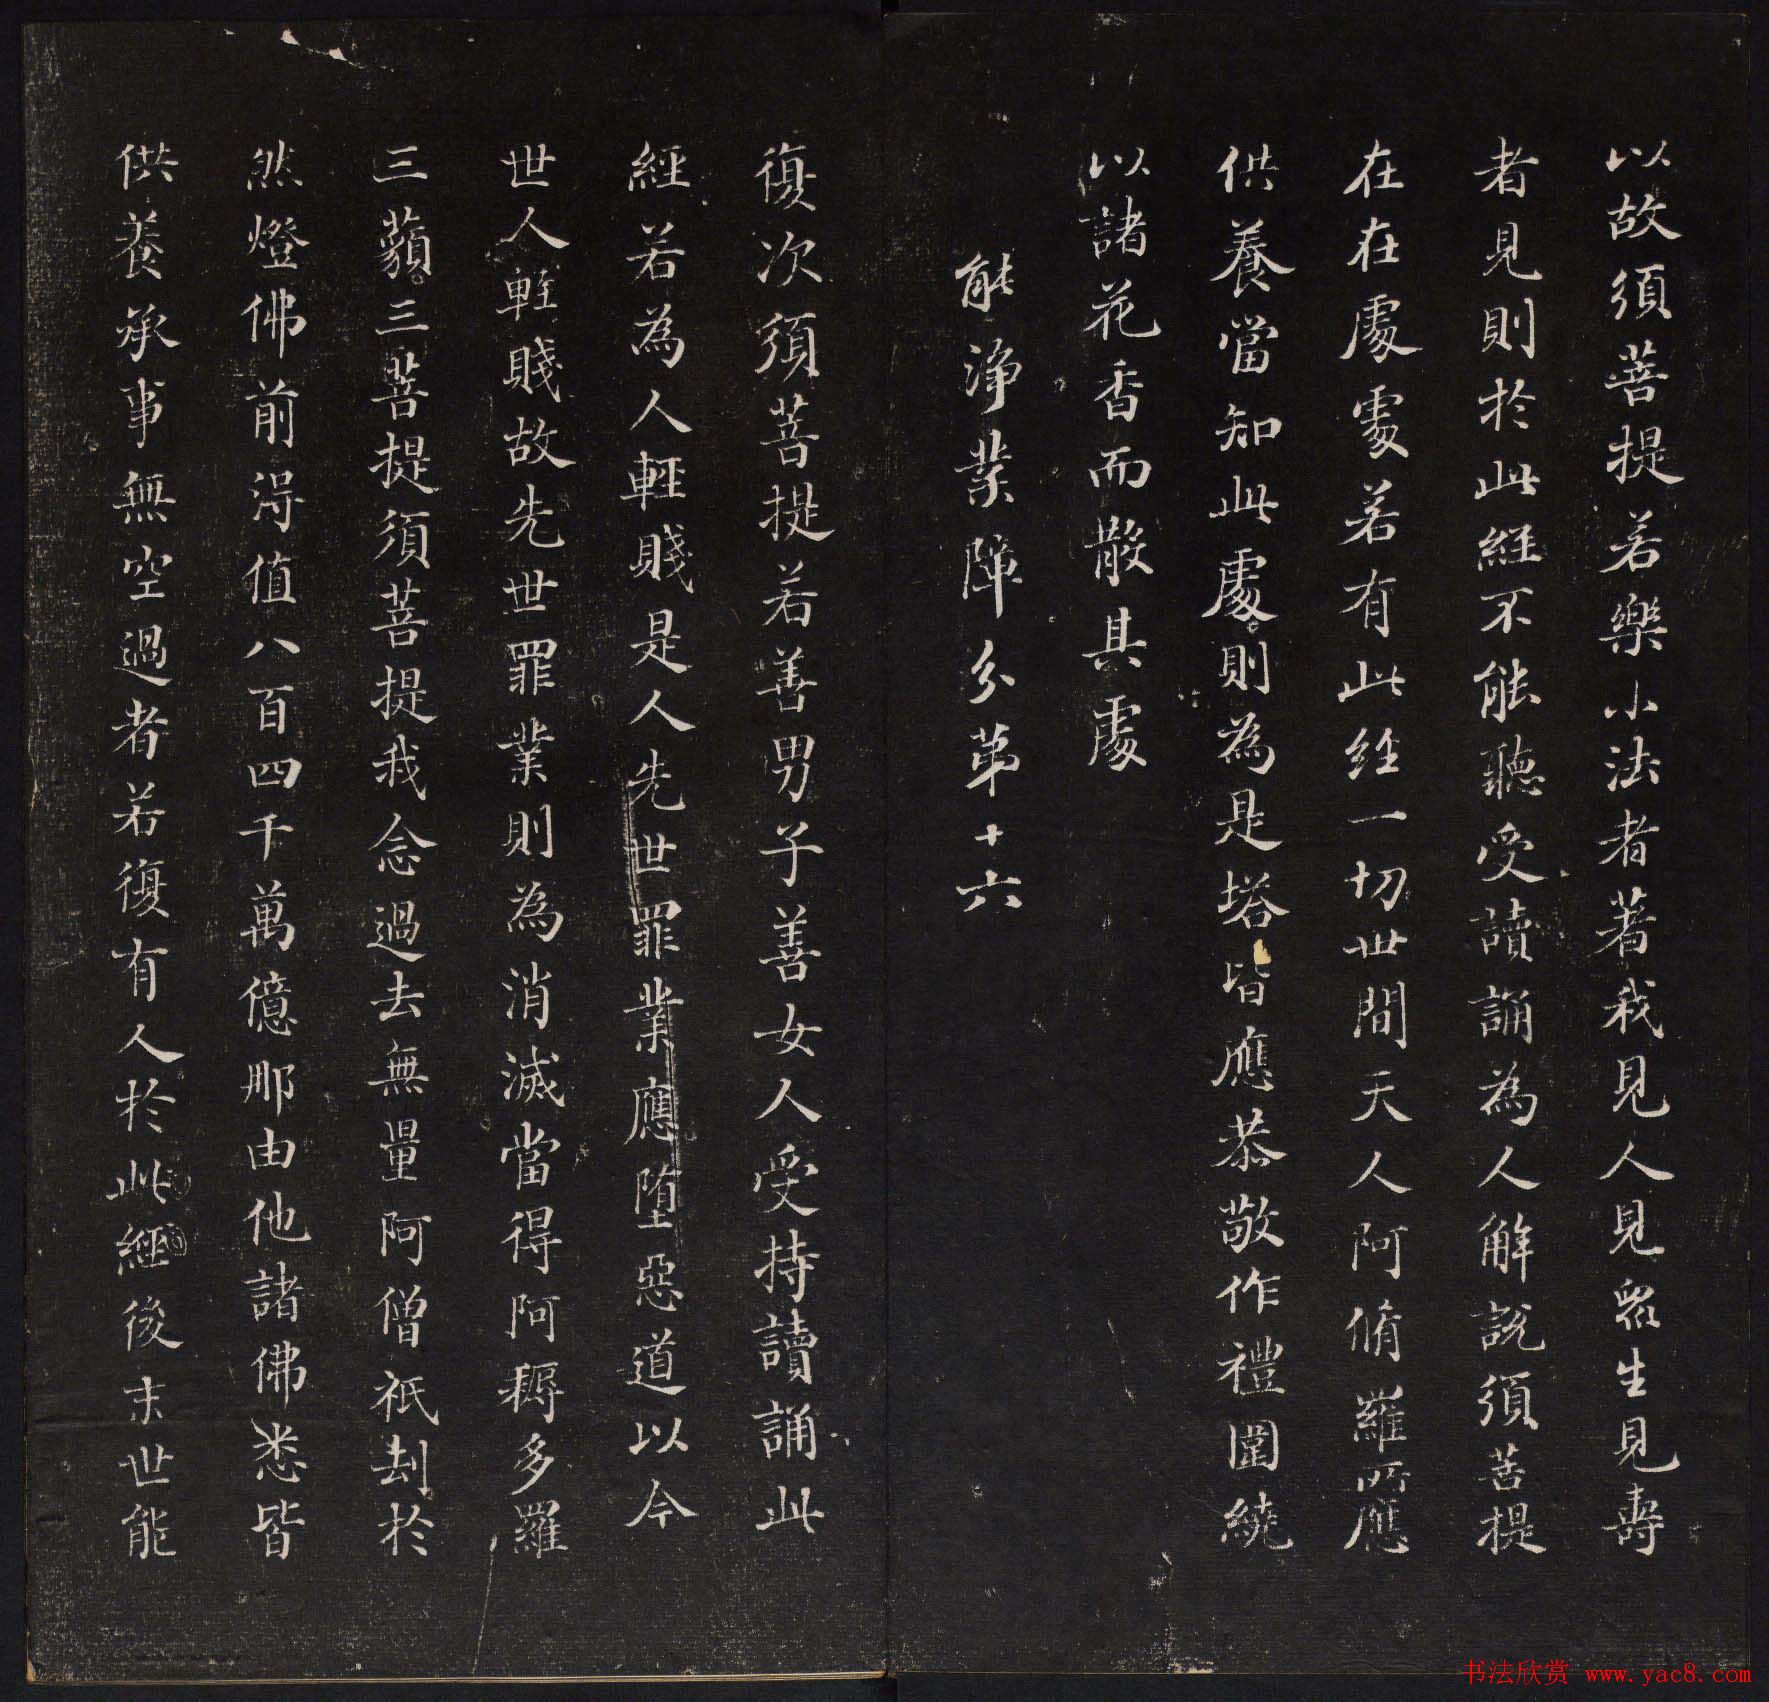 以故須菩提若樂小法者著我見人見眾生見壽
者見則於此經不能聽受讀誦為人解說須菩提
在在處處若有此經一切世間天人阿脩羅所應
供養當知此處則為是塔皆應恭敬作禮圍繞
以諸花香而散其處
能淨業障分第十六
復次須菩提若善男子善女人受持讀誦此
經若為人輕賤是人先世罪業應墮惡道以今
世人輕賤故先世罪業則為消滅當得阿耨多羅
三藐三菩提須菩提我念過去無量阿僧祇劫於
然燈佛前得值八百四千萬億那由他諸佛悉皆
供養承事無空過者若復有人於此經後末世能
书法欣赏 www.yac8.com